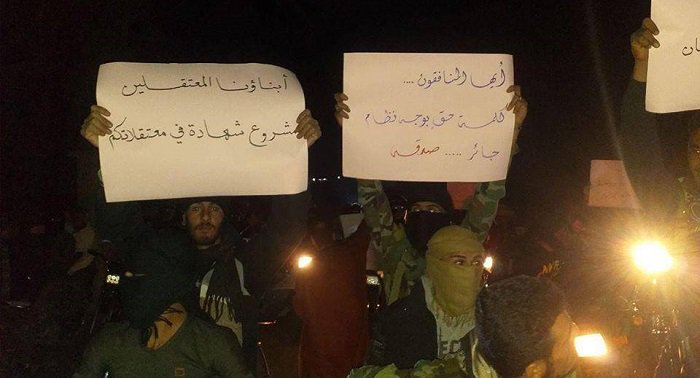 أبناؤنا المعتقلين
مشروع شهادة في معتقلاتكم
أيها المنافقون ....
كلمة حق بوجه نظام
جائر ..... صدقة